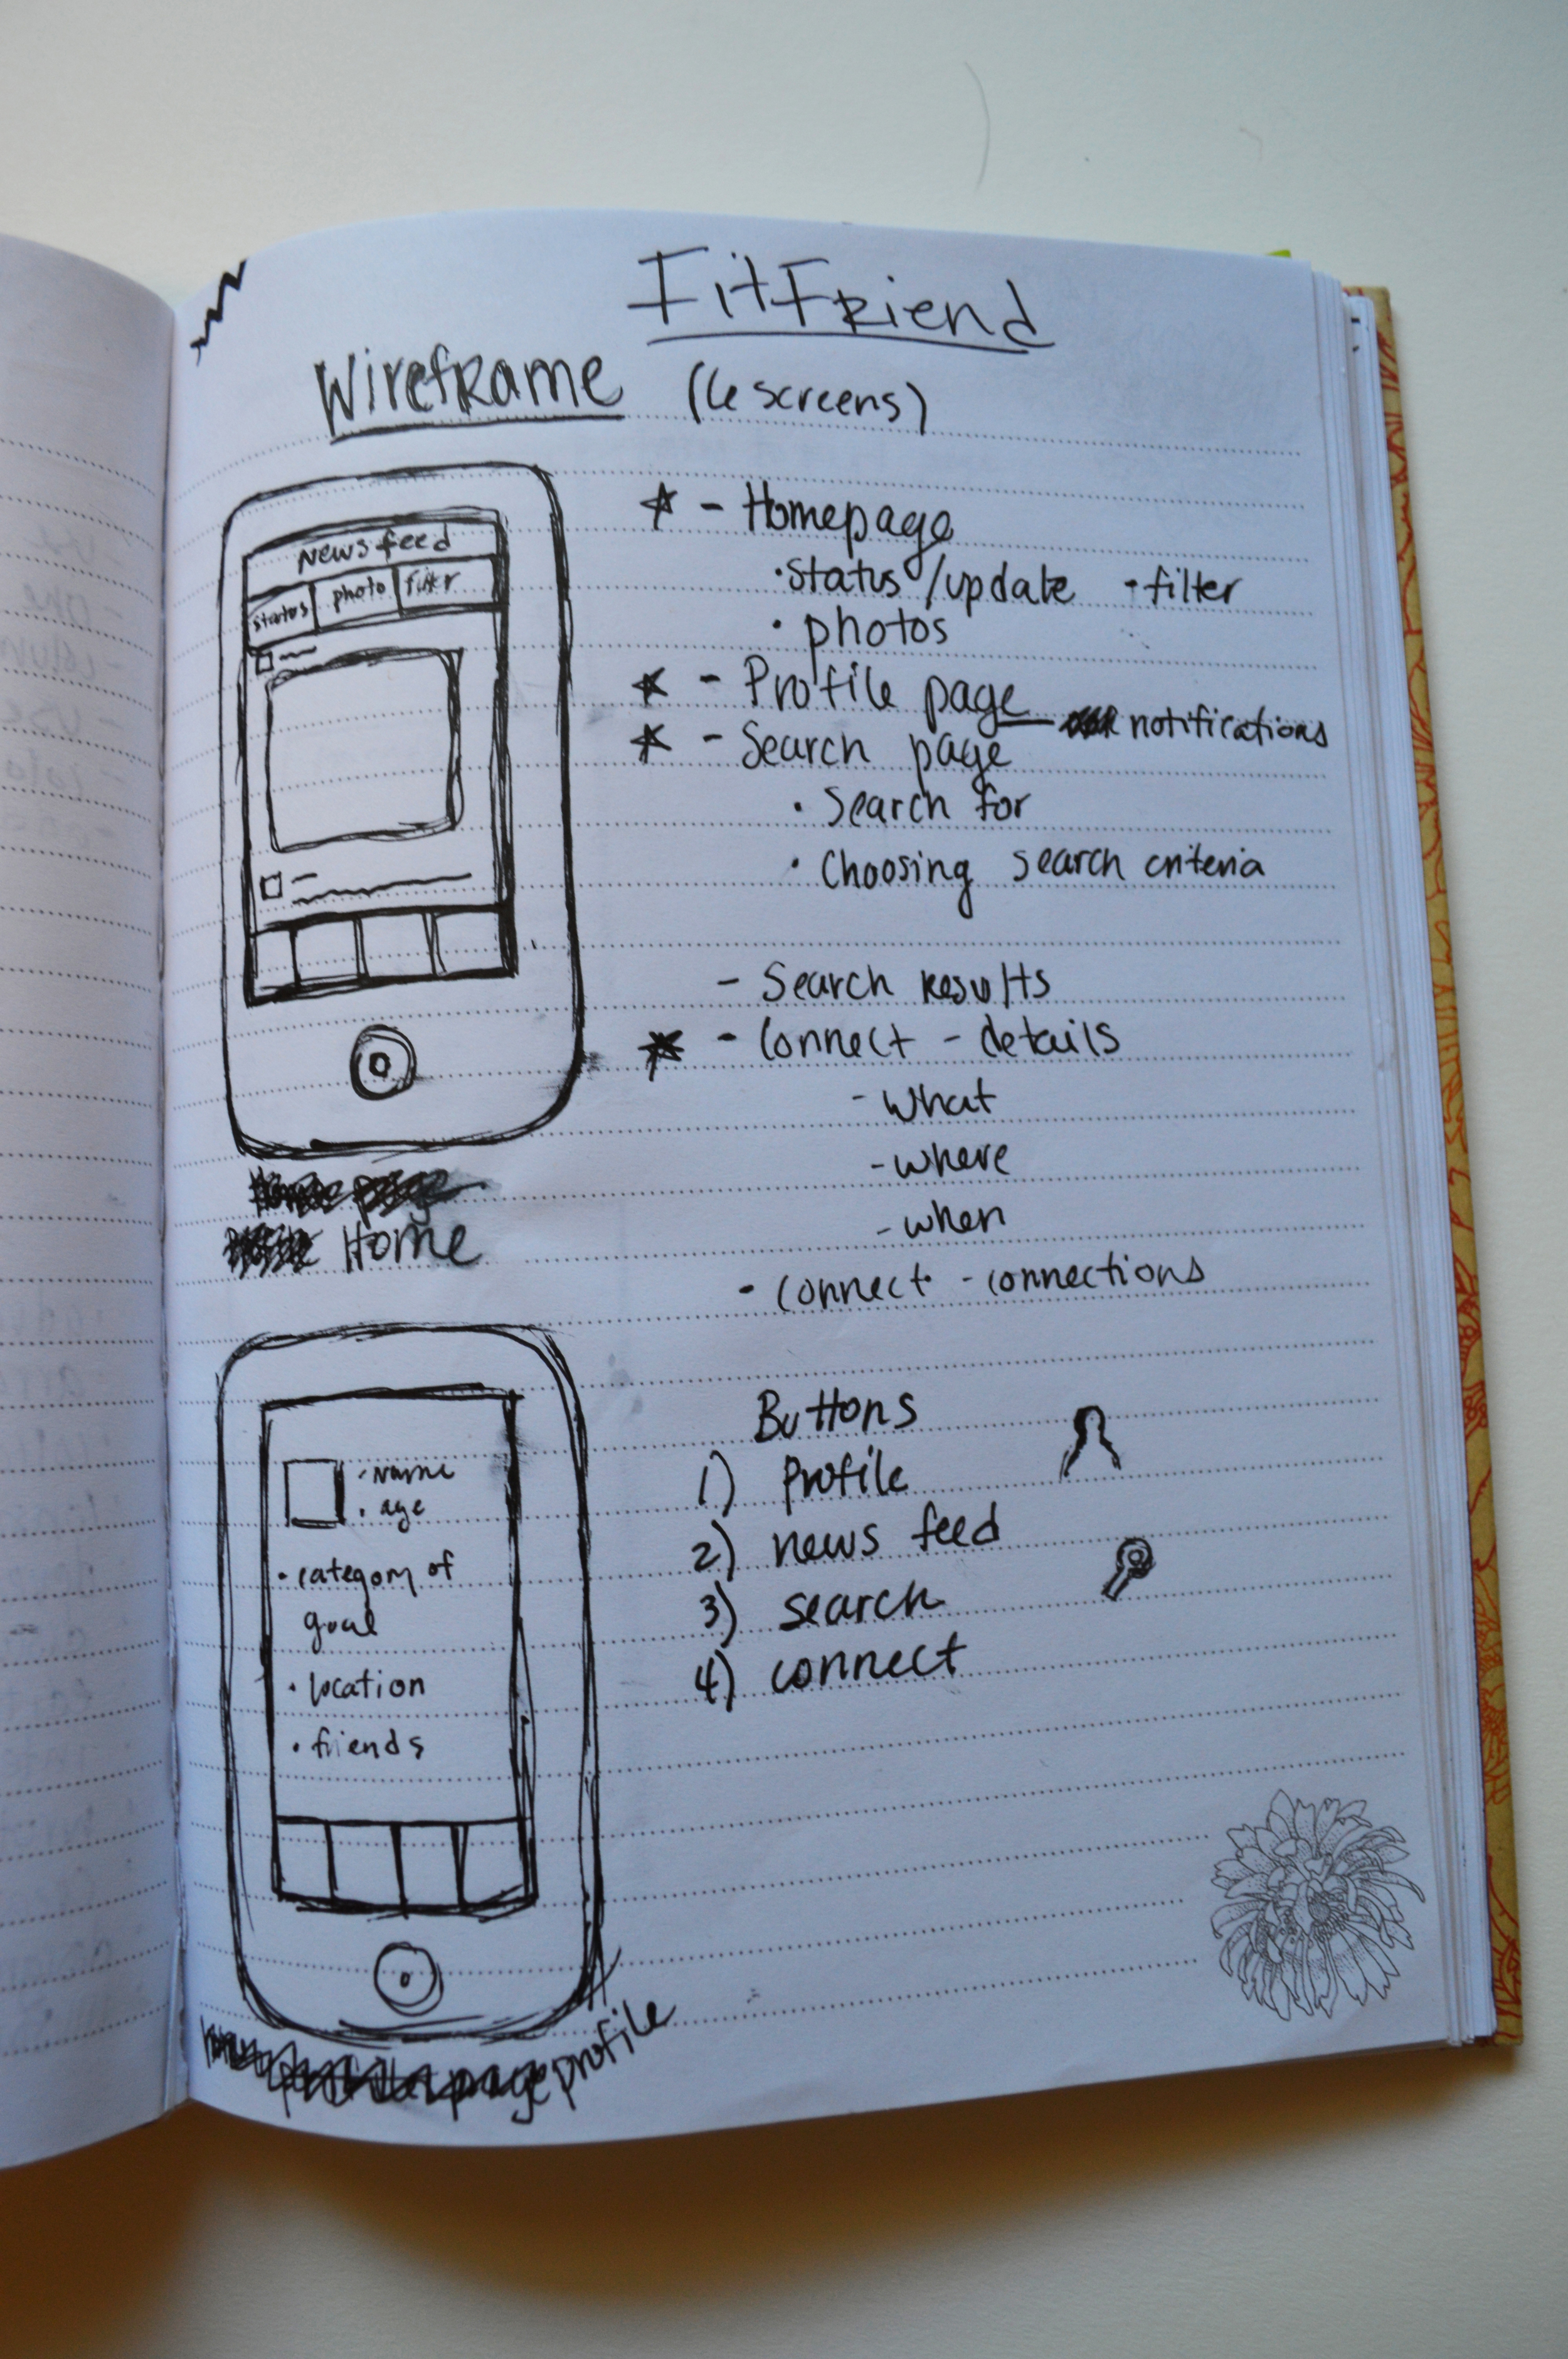 FitFriend
Wireframe (6 screens)
News feed
status photo filter
Home
- Homepage
· status/update · filter
· photos
- Profile page — notifications
- Search page
· Search for
· Choosing search criteria
- Search results
- Connect - details
- what
- where
- when
- connect - connections
· Name
· age
· category of
goal
· location
· friends
profile
Buttons
1) profile
2) news feed
3) search
4) connect